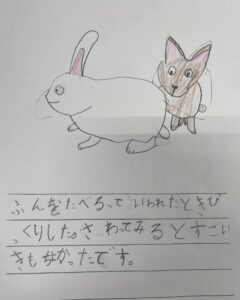 ふんをたべるって いわれたときび
っくりした。さわってみるとすごい
きもちよかったです。